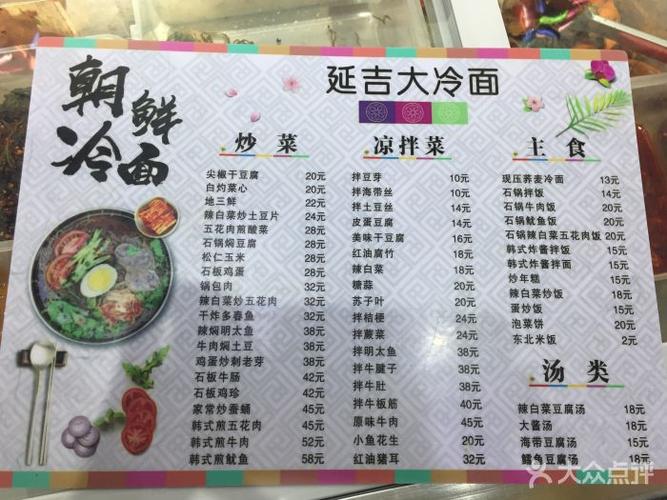 朝鲜冷面
延吉大冷面
炒菜
尖椒干豆腐 20元
白灼菜心 20元
地三鲜 22元
辣白菜炒土豆片 24元
五花肉煎酸菜 28元
石锅焖豆腐 28元
松仁玉米 28元
石板鸡蛋 28元
锅包肉 32元
辣白菜炒五花肉 32元
干炸多春鱼 32元
辣焖明太鱼 38元
牛肉焖土豆 38元
鸡蛋炒刺老芽 38元
石板牛肠 42元
石板鸡珍 42元
家常炒蚕蛹 45元
韩式煎五花肉 45元
韩式煎牛肉 52元
韩式煎鱿鱼 58元
凉拌菜
拌豆芽 10元
拌海带丝 10元
拌土豆丝 14元
皮蛋豆腐 14元
美味干豆腐 16元
红油腐竹 18元
辣白菜 18元
糖蒜 18元
苏子叶 24元
拌桔梗 24元
拌蕨菜 24元
拌明太鱼 38元
拌牛腱子 38元
拌牛肚 38元
拌牛板筋 40元
原味牛肉 45元
小鱼花生 20元
红油猪耳 32元
主食
现压荞麦冷面 13元
石锅拌饭 14元
石锅牛肉饭 20元
石锅鱿鱼饭 20元
石锅辣白菜五花肉饭 20元
韩式炸酱拌饭 15元
韩式炸酱拌面 15元
炒年糕 15元
辣白菜炒饭 18元
蛋炒饭 15元
泡菜饼 20元
东北米饭 2元
汤类
辣白菜豆腐汤 18元
大酱汤 18元
海带豆腐汤 15元
鳕鱼豆腐汤 18元
大众点评